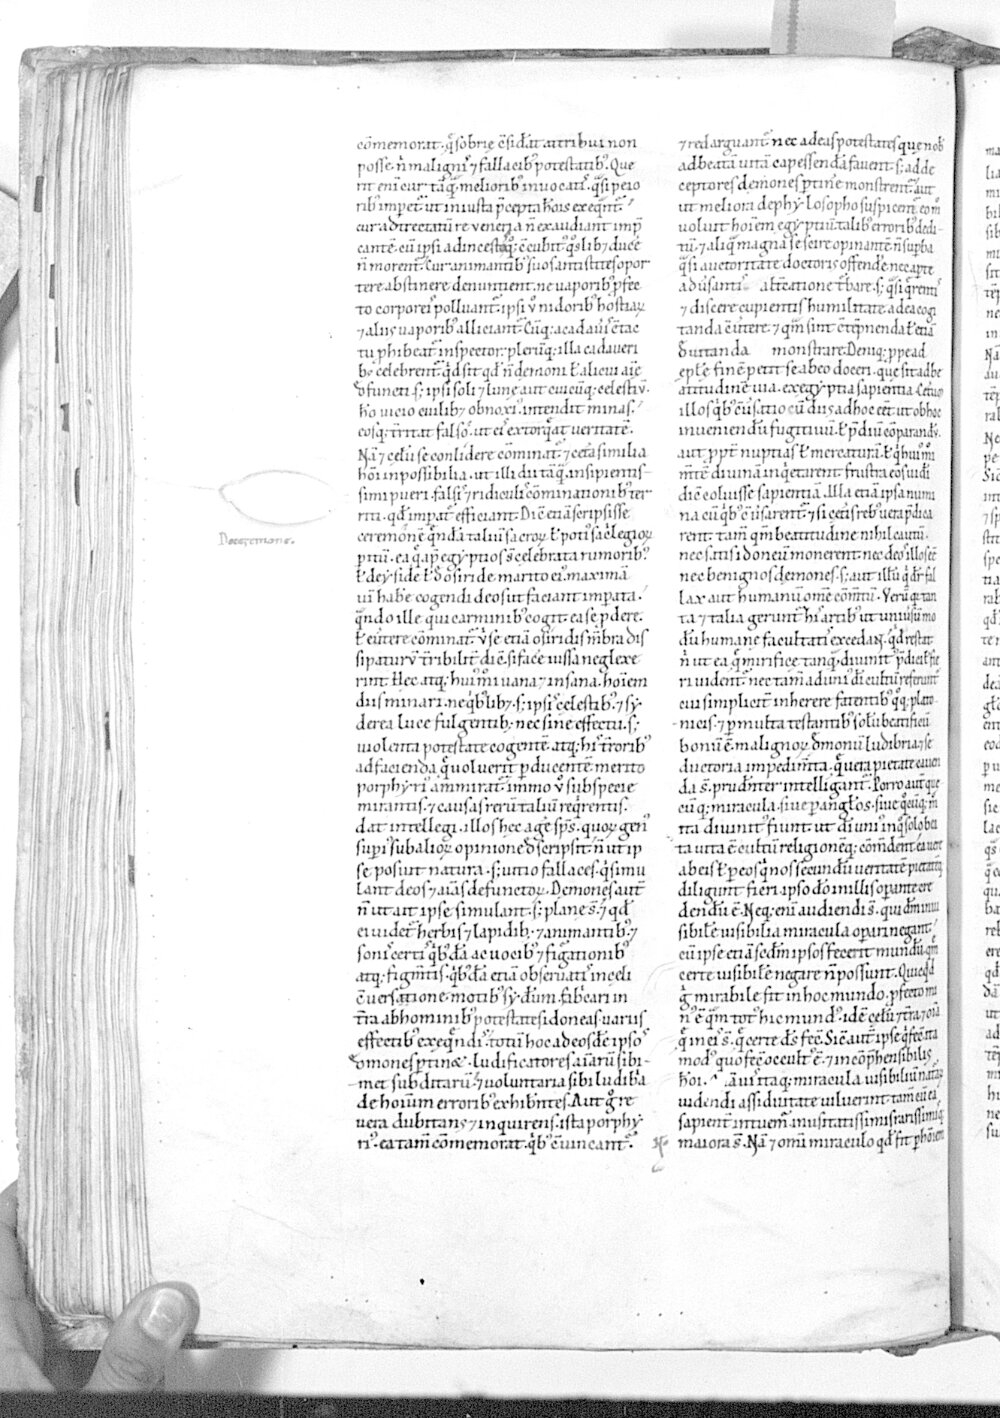 cōmemorat. q̄ sobrie c̄sid'at attribui non
posse. n̄ malignis ⁊ fallacib; potestatib;. Que
rit eni cur tāq̄ meliorib; inuocatis. q̄si peio
rib; imperet. ut iniusta p̄cepta hoīs exeq̄nt᷑.
cur adtrectatū re ueneria n̄ exaudiant imp̄
cantē. cū ipsi ad incestos q; c̄cubit; q̄slib; ducē
n̄ morent᷑. Cur animantib; suos antistites opor
tere abstinere denuntient. ne uaporib; p̄fec
to corporeis polluant᷑. ipsi ū nidorib; hostiaꝝ
⁊ aliis uaporib; alliciant᷑. Cūq; a cadaueris c̄tac
tu p̄hibeat᷑ inspector. plerūq; illa cadaueri
b; celebrent᷑. q̄d sit qd n̄ demoni ł alicui aīe
d'functi s; ipsi soli ⁊ lune aut cuicūq; celestiū.
hō uicio cuilib; obnoxius intendit minas.
eosq; t̄ritat falso. ut eis extorq̄at ueritatē.
Nā ⁊ celū se conlidere cōminat᷑. ⁊ cet̄a similia
hōi inpossibilia. ut illi dii tāq̄ insipientis
simi pueri. falsis ⁊ ridiculis cōminationib; ter
riti. qd impat᷑ efficiant. Dic̄ etiā scripsisse
ceremonē q̄ndā taliū sacroꝝ ł potius sac̄legioꝝ
pitū. ea q̄ ap̄ egyptios s̄ celebrata rumorib;
ł de yside ł d' osiride marito eius. maximā
uī habere cogendi deos ut faciant imperata.
q̄ndo ille qui carminib; cogit ea se p̄dere
ł euertere cōminat᷑. u' se etiā osiridis mb̄ra dis
sipaturū tribilit᷑ dic̄. si facē iussa neglexe
rint. Hec atq; hui' mī uana ⁊ insana. hoīem
diis minari. neq̄b'lib; s; ipsis celestib;. ⁊ sy
derea luce fulgentib;. nec sine effectu. s;
uiolenta potestate cogentē. atq; his t̄rorib;
ad facienda q̄ uoluerit p̄ducentē. merito
porphyrius ammirat᷑. immo ū sub specie
mirantis. ⁊ causas rerū taliū req̄rentis.
dat intellegi. illos hec agē sp̄s. quoꝝ gen'
sup̄i' sub alioꝝ opinione d'scripsit. n̄ ut ip
se posuit natura. s; uitio fallaces. q̄ simu
lant deos ⁊ aīas defunctoꝝ. Demones aūt
n̄ ut ait ipse simulant. s; plane s̄. ⁊ qd
ei uidet᷑ herbis ⁊ lapidib;. ⁊ animantib;. ⁊
sonis certis q̄b'dā ac uocib; ⁊ figationib;
atq; figm̄tis. q̄b'dā etiā obseruatis in celi
c̄uersatione motib; syderum. fab'cari in
tr̄a ab hominib; potestates idoneas uariis
effectib; exeq̄ndis. totū hoc ad eosdē ipsos
demones p̄tinet. ludificatores aīarū sibi
met subditarū. ⁊ uoluntaria sibi ludib'a
de hoīum errorib; exhib'ntes. Aut g' re
uera dubitans ⁊ inquirens. ista porphy
rius. ea tam̄ cōmemorat. q̄b' c̄uincant᷑.
⁊ redarguant᷑. nec ad eas potestates que nob'
ad beatā uitā capessendā fauent. s; ad de
ceptores demones p̄tinē monstrent᷑. aut
ut meliora de phylosopho suspicem᷑. eo mō
uoluit hoīem egyptiū talib; errorib; dedi
tū. ⁊ aliq̄ magna se scire opinantē n̄ supba
q̄si auctoritate doctoris offendē. nec apte
adūsantis altercatione t'bare. s; q̄si q̄rentis
⁊ discere cupientis humilitate ad ea cogi
tanda c̄uertere. ⁊ q̄m sint c̄tēpnenda ł etiā
deuitanda monstrare. Deniq; p̄pe ad
ep̄le finē petit se ab eo doceri. que sit ad be
atitudinē uia. ex egyptia sapientia. Cet̄um
illos q̄b' c̄uersatio cū diis ad hoc eēt. ut ob hoc
inueniendū fugitiuū. ł p̄diū cōparandū.
aut ppt̄ nuptias ł mercaturā. ł q̄d hui' mī
m̄tē diuinā inq̄etarent. frustra eos uidi
dic̄ coluisse sapientiā. Illa etiā ipsa numi
na cū q̄b' c̄uersarent᷑. ⁊ si cet̄is reb; uera p̄dica
rent. tam̄ q̄m de beatitudine nihil cautū.
nec satis idoneū monerent. nec deos illos eē
nec benignos demones. s; aut illū q̄ d'r fal
lax. aut humanū om̄e cōmtū. Verū q; tan
ta ⁊ talia gerunt᷑ his artib; ut uniūsū mo
dū humane facultatis excedat. q̄d restat
n̄ ut ea q̄ mirifice tanq̄ diuinit᷑ p̄dici ł fie
ri uident᷑. nec tam̄ ad unius di cultū referunt᷑
cui simplicit᷑ inherere fatentib; q̄q; plato
nicis. ⁊ p̄ multa testantib; solū beatificū
bonū ē. malignoꝝ d'monū ludibria ⁊ se
ductoria impedim̄ta. q̄ uera pietate cauen
da s̄. prud'nter intelligant᷑. Porro aut̄ que
cūq; miracula. siue p̄ anglos. siue q̄cūq; m̄
ita diuinit᷑ fiunt. ut di unius in q̄ solo bea
ta uita ē cultū religionēq; cōmdent. ea uere
ab eis ł p̄ eos q̄ nos secundū ueritatē pietatēq;
diligunt. fieri ipso dō in illis operante cre
dendū ē. Neq; eni audiendi s̄. qui dm̄ inui
sibilē. uisibilia miracula operari negant.
cū ipse etiā sedm̄ ipsos fecerit mundū. q̄m
certe uisibilē negare n̄ possunt. Quicqd
g' mirabile fit in hoc mundo. p̄fecto min'
n' ē. q̄m tot' hic mund'. id ē celū ⁊ tr̄a ⁊ oīa
q̄ in eis s̄. q̄ certe d's fecit. Sic̄ aut̄ ipse q̄ fecit. ita
mod' quo fecit. occult' ē. ⁊ incōp̄hensibilis
hōi. Quāuis itaq; miracula uisibiliū naturaꝝ
uidendi assiduitate uiluerint. tam̄ cū ea
sapient᷑ intuem᷑. inusitatissimis rarissimisq;
maiora s̄. Nā ⁊ omi miraculo qd fit p̄ hoīem
De ceremonie.